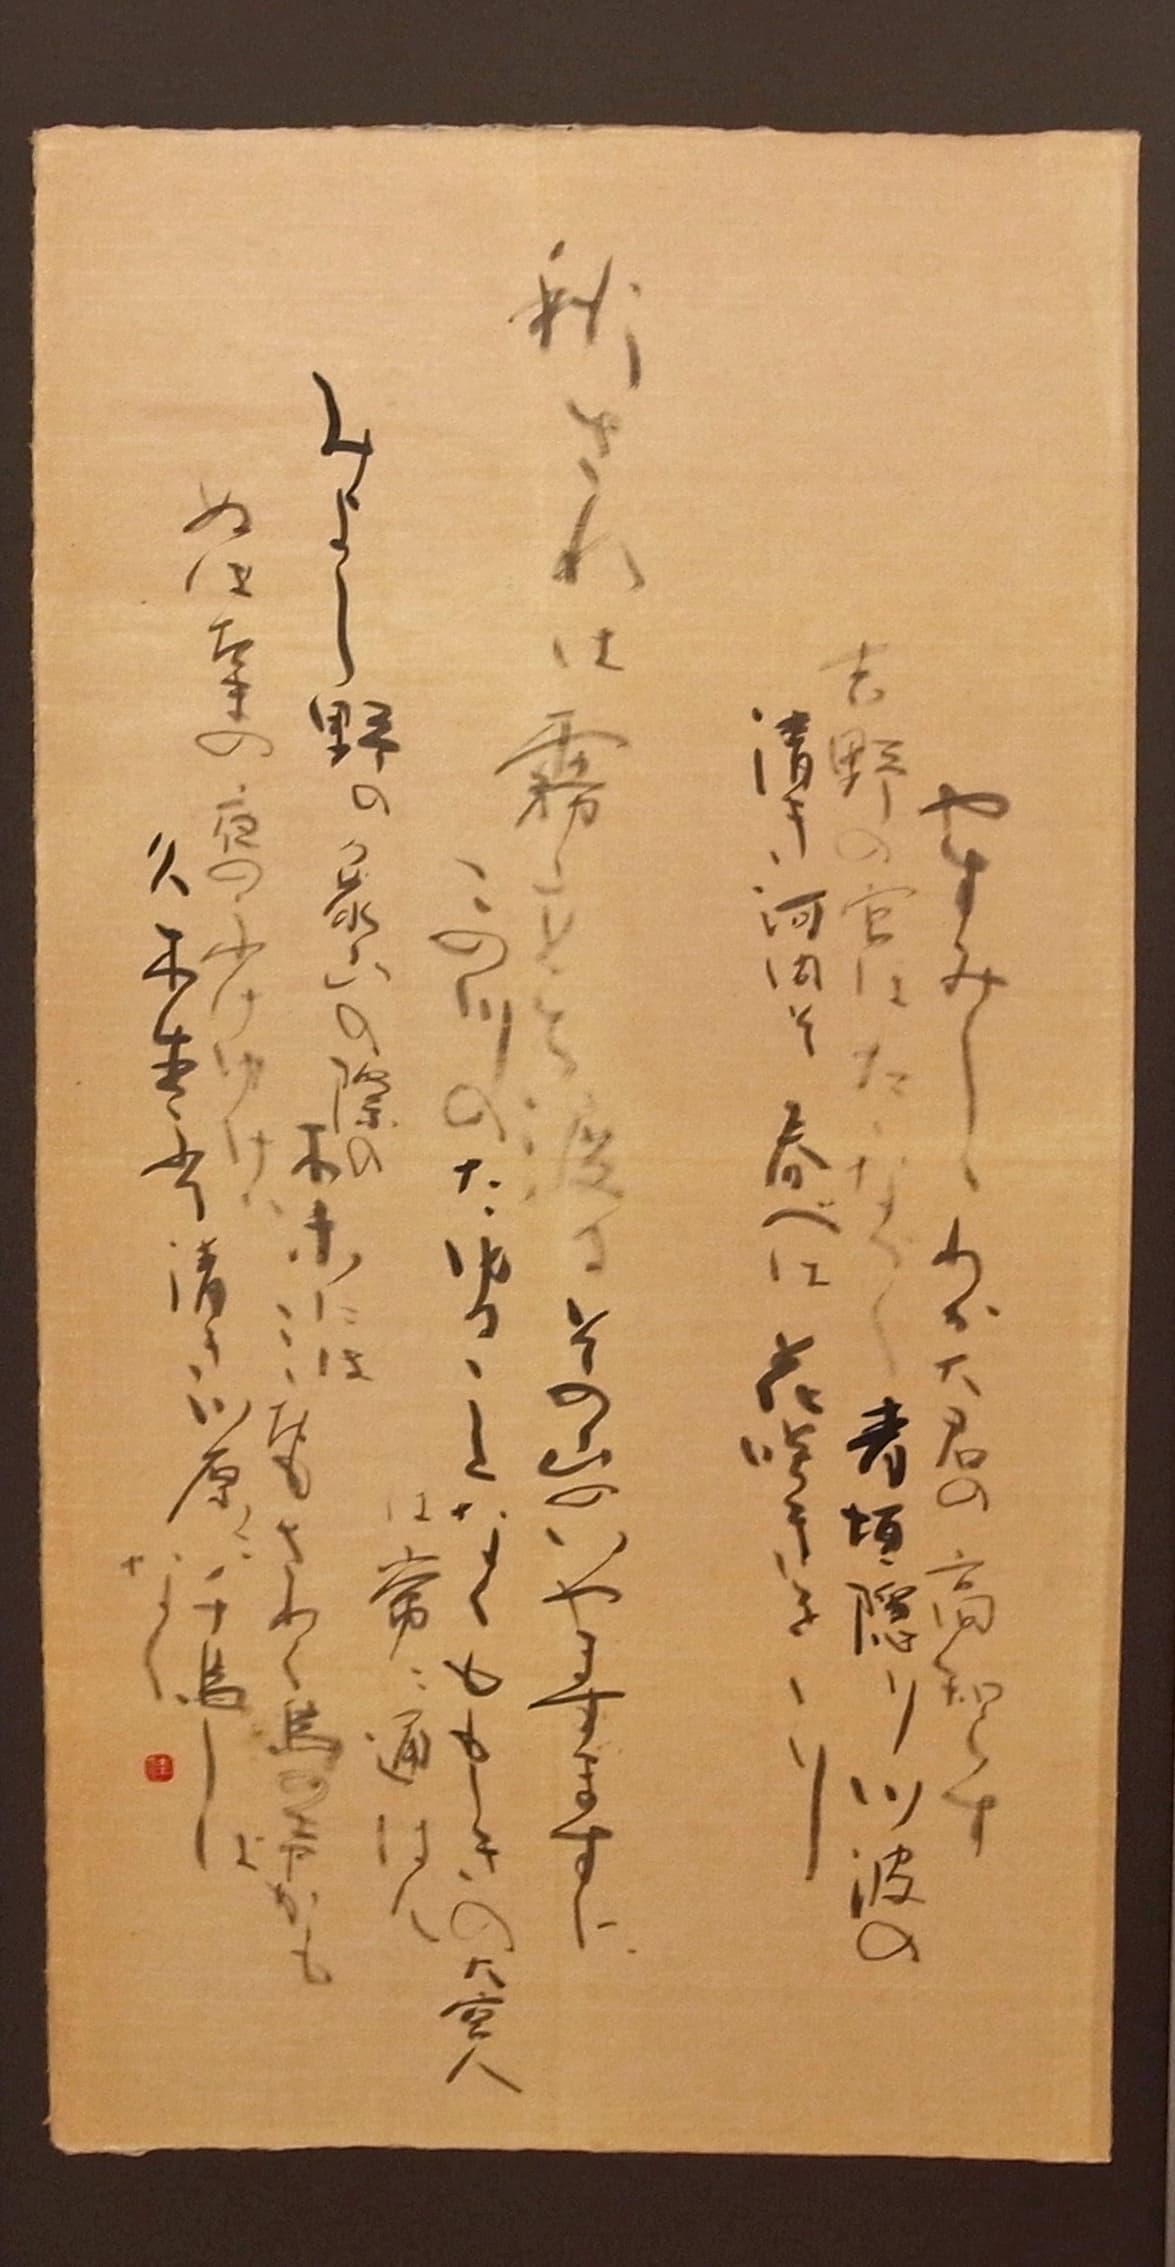 やすみしゝわか大君の高知らす
吉野の宮はたゝなづく青垣隠り川波の
清き河内そ春べは花咲きをゝり
秋されは霧たち渡るその山のいやますますに
この川のたゆることなくももしきの大宮人
は常に通はん
みよし野の象山の際の
木末には
こゝたもさわく鳥の声かも
ぬはたまの夜のふけゆけば
久木生ふる清き川原に千鳥しば
なく